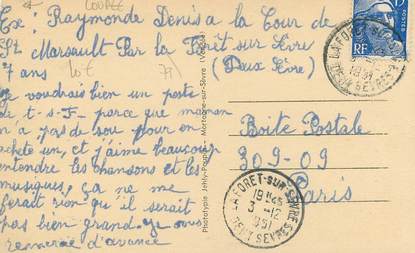 COUPÉE
Ex: Raymonde Denis a la Cour de
St Marsault Par la Forêt sur Sèvre
(Deux Sèvre)
7 ans
10 €
79
je voudrais bien un poste
de t-s-f- parce que maman
n a pas de sou pour en
achete un, et j'aime beaucoup
entendre les chansons et les
musiques, ça ne me
ferait rien qu'il serait
pas bien grand. je vous
remercie d'avance
Phototypie Jehly-Poupin, Mortagne-sur-Sèvre (Vendée)
Boite Postale
309-09
Paris
15F
RF
POSTES
LA FORET-SUR-SEVRE
1951
DEUX SEVRES
LA FORET-SUR-SEVRE
19H45
3-12
1951
DEUX SEVRES